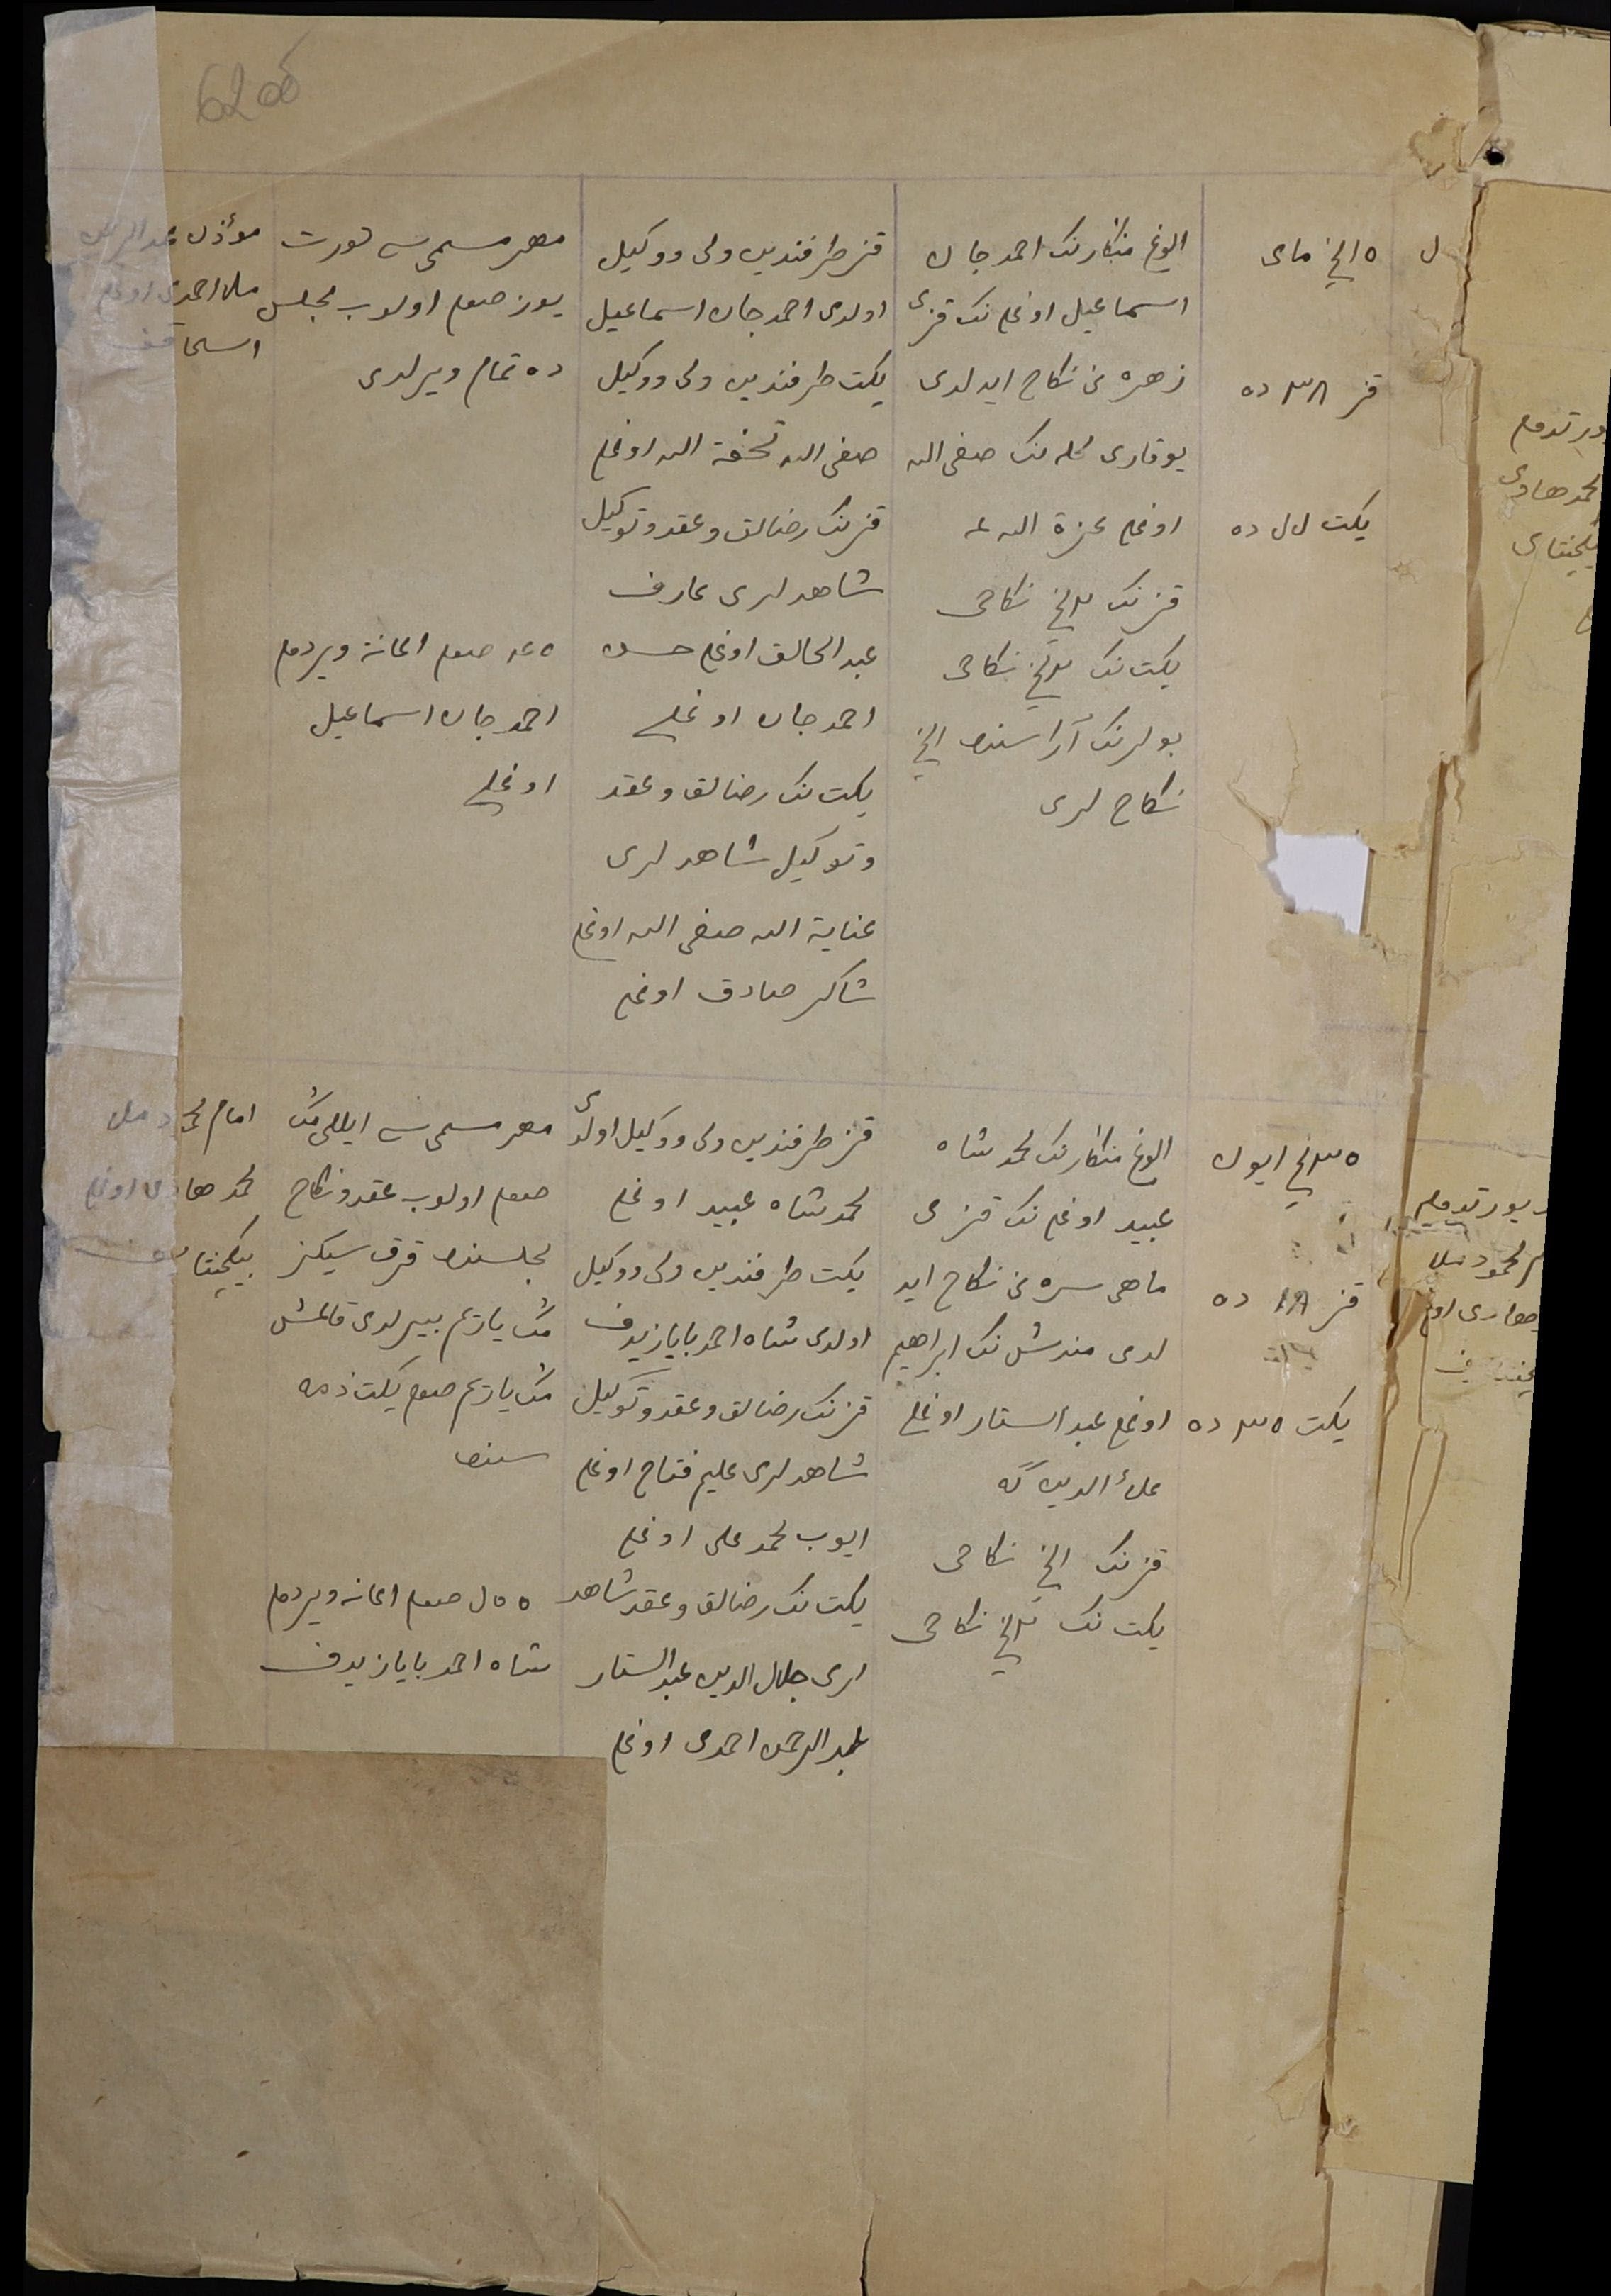 620б
ل
٥ انچی مای
قز ٣٨ ده
یکت ل ل ده
الوغ منکارنک احمد جان
اسماعیل اوغلی نک قزی
زهره نی نکاح ایدلدی
یوقاری محله نک صفی الله
اوغلی عزة الله غه
قزنک نچی نکاحی
یکت نک نچی نکاحی
بولرنک آراسنده انچی
نکاح لری
قز طرفندین ولی ووکیل
اولدی احمد جان اسماعیل
یکت طرفندین ولی ووکیل
صفی الله تحفة الله اوغلی
قزنک رضالق وعقد وتوکیل
شاهد لری عارف
عبد الخالق اوغلی حسن
احمد جان اوغلی
یکت نک رضالق وعقد
وتوکیل شاهد لری
عنایة الله صفی الله اوغلی
شاکر صادق اوغلی
مهر مسمی سی دورت
یوز صوم اولوب مجلس
ده تمام ویرلدی
صوم اعانة ویردم
احمد جان اسماعیل
اوغلی
مؤذن عبد الرحمن
ملا احمدی اوغلی
اسحاقف
٣٥ نچی ایون
قز ١٨ ده
یکت ٣٥ ده
الوغ منکارنک محمد شاه
عبید اوغلی نک قزی
ماهی سره نی نکاح اید
لدی مندش نک ابراهیم
اوغلی عبد الستار اوغلی
علاء الدین گه
قزنک انچی نکاحی
یکت نک نچی نکاحی
قز طرفندین ولی ووکیل اولدی
محمد شاه عبید اوغلی
یکت طرفندین ولی ووکیل
اولدی شاه احمد بایازیدف
قزنک رضالق وعقد وتوکیل
شاهد لری علیم فتاح اوغلی
ایوب محمد علی اوغلی
یکت نک رضالق وعقد شاهد
لری جلال الدین عبد الستار
عبد الرحمن احمدی اوغلی
مهر مسمی سی ایللی مک
صوم اولوب عقد ونکاح
مجلسنده قرق سیکز
مک یارتی بیرلدی قالمش
مک یارتی صوم یکت ذمه
سنده
صوم اعانه ویردم
شاه احمد بایازیدف
امام محمود ملا
محمد هادی اوغلی
بیکچنتایف
محمد هادی